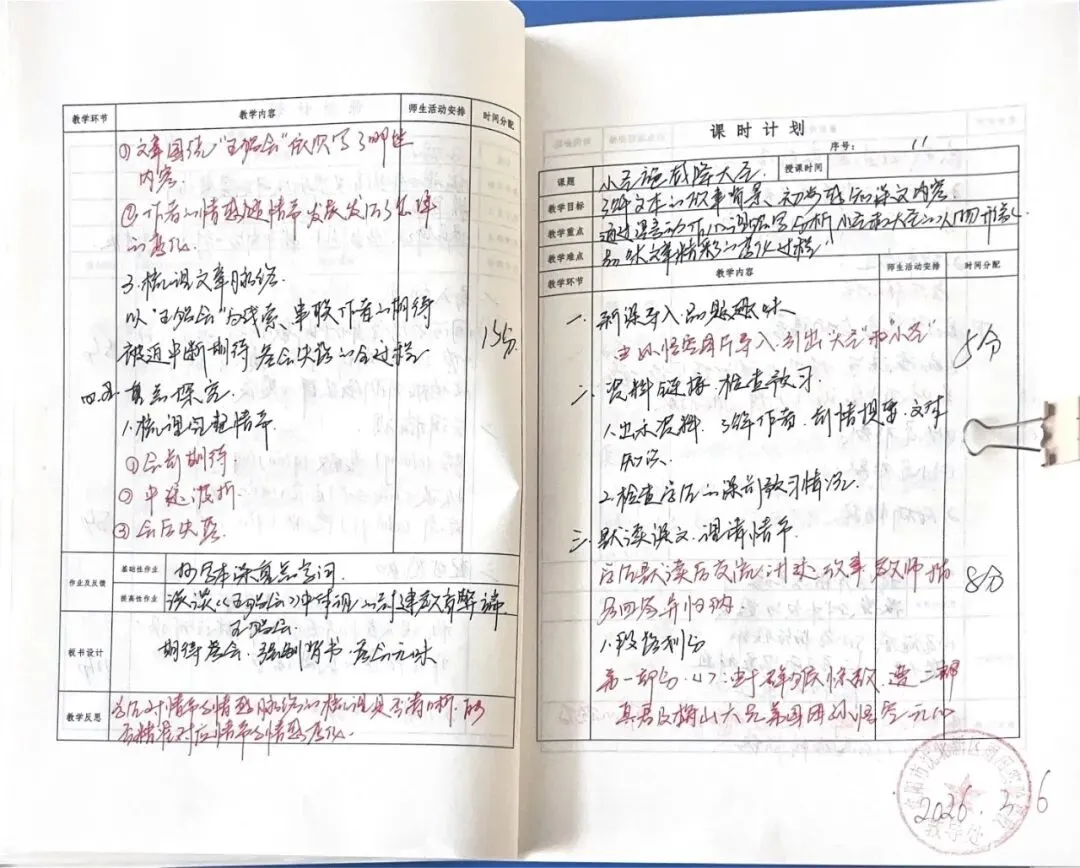 教学环节 教学内容 师生活动安排 时间分配
①文章围绕"五猖会"依次写了哪些
内容
②作者的情感随情节发展发生了怎样
的变化
3.梳理文章脉络
以"五猖会"为线索、串联作者的期待
被迫中断期待 看会失落的全过程
15分
四. 重点探究
1.梳理完整情节
①会前期待
②中途波折
③会后失落
作业及反馈 基础性作业 抄写本课重点字词
提高性作业 谈谈《五猖会》中体现的封建教育弊端
板书设计 五猖会
期待看会 强制背书 看会无味
教学反思 学生对情节与情感脉络的梳理是否清晰.能
否精准对应情节与情感变化.
课时计划
序号: 11
课题 小圣施威降大圣. 授课时间
教学目标 了解文本的故事背景、初步感知课文内容
教学重点 通过语言动作心理描写分析小圣和大圣的人物形象
教学难点 品味文章情彩的变化过程
教学环节 教学内容 师生活动安排 时间分配
一. 新课导入 品趣味
由孙悟空图片导入.引出"大圣"和"小圣"
5分
二. 资料链接.检查预习.
1.出示资料.了解作者.剧情提要.文体
知识
2.检查学生的课前预习情况.
三. 默读课文.理清情节
学生默读后交流.讲述故事 教师指
名回答并归纳
8分
1.段落划分
第一部分.(1):由于群猴惊散.遭二郎
真君及梅山六兄弟围困孙悟空无心
2026.3.6
教导处